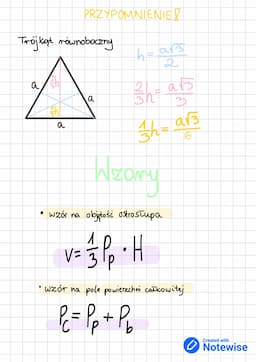 PRZYPOMNIENIE!
Trójkąt równoboczny
h = a√3/2
a
a
a
2/3h
1/3h
2/3h = a√3/3
1/3h = a√3/6
Wzory
• wzór na objętość ostrosłupa
V = 1/3 Pp · H
• wzór na pole powierzchni całkowitej
Pc = Pp + Pb
Created with
Notewise